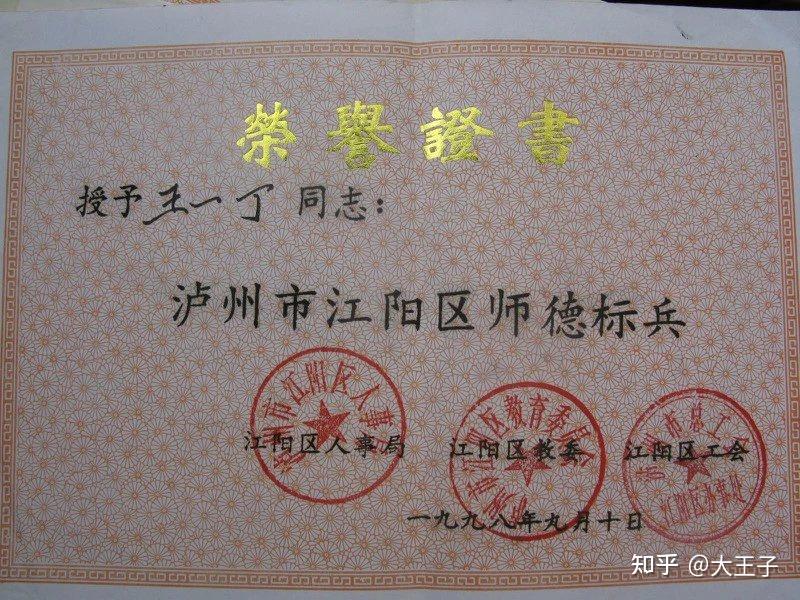 榮譽證書
授予王一丁同志：
泸州市江阳区师德标兵
泸州市江阳区人事局
泸州市江阳区教育委员会
泸州市总工会
江阳区办事处
江阳区人事局 江阳区教委 江阳区工会
一九九八年九月十日
知乎 @大王子